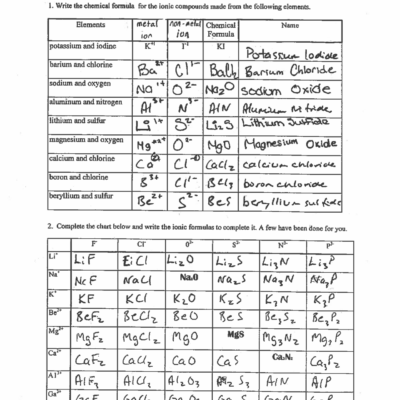 1. Write the chemical formula for the ionic compounds made from the following elements.
Elements metal ion non-metal ion Chemical Formula Name
potassium and iodine K¹⁺ I¹⁻ KI Potassium Iodide
barium and chlorine Ba²⁺ Cl¹⁻ BaCl₂ Barium Chloride
sodium and oxygen Na¹⁺ O²⁻ Na₂O sodium Oxide
aluminum and nitrogen Al³⁺ N³⁻ AlN Aluminum nitride
lithium and sulfur Li¹⁺ S²⁻ Li₂S Lithium Sulfide
magnesium and oxygen Mg²⁺ O²⁻ MgO Magnesium Oxide
calcium and chlorine Ca²⁺ Cl CaCl₂ calcium chloride
boron and chlorine B³⁺ Cl¹⁻ BCl₃ boron chloride
beryllium and sulfur Be²⁺ S²⁻ BeS beryllium sulfide
2. Complete the chart below and write the ionic formulas to complete it. A few have been done for you.
F⁻ Cl⁻ O²⁻ S²⁻ N³⁻ P³⁻
Li⁺ LiF LiCl Li₂O Li₂S Li₃N Li₃P
Na⁺ NaF NaCl Na₂O Na₂S Na₃N Na₃P
K⁺ KF KCl K₂O K₂S K₃N K₃P
Be²⁺ BeF₂ BeCl₂ BeO BeS Be₃S₂ Be₃P₂
Mg²⁺ MgF₂ MgCl₂ MgO MgS Mg₃N₂ Mg₃P₂
Ca²⁺ CaF₂ CaCl₂ CaO CaS Ca₃N₂ Ca₃P₂
Al³⁺ AlF₃ AlCl₃ Al₂O₃ Al₂S₃ AlN AlP
Ga³⁺